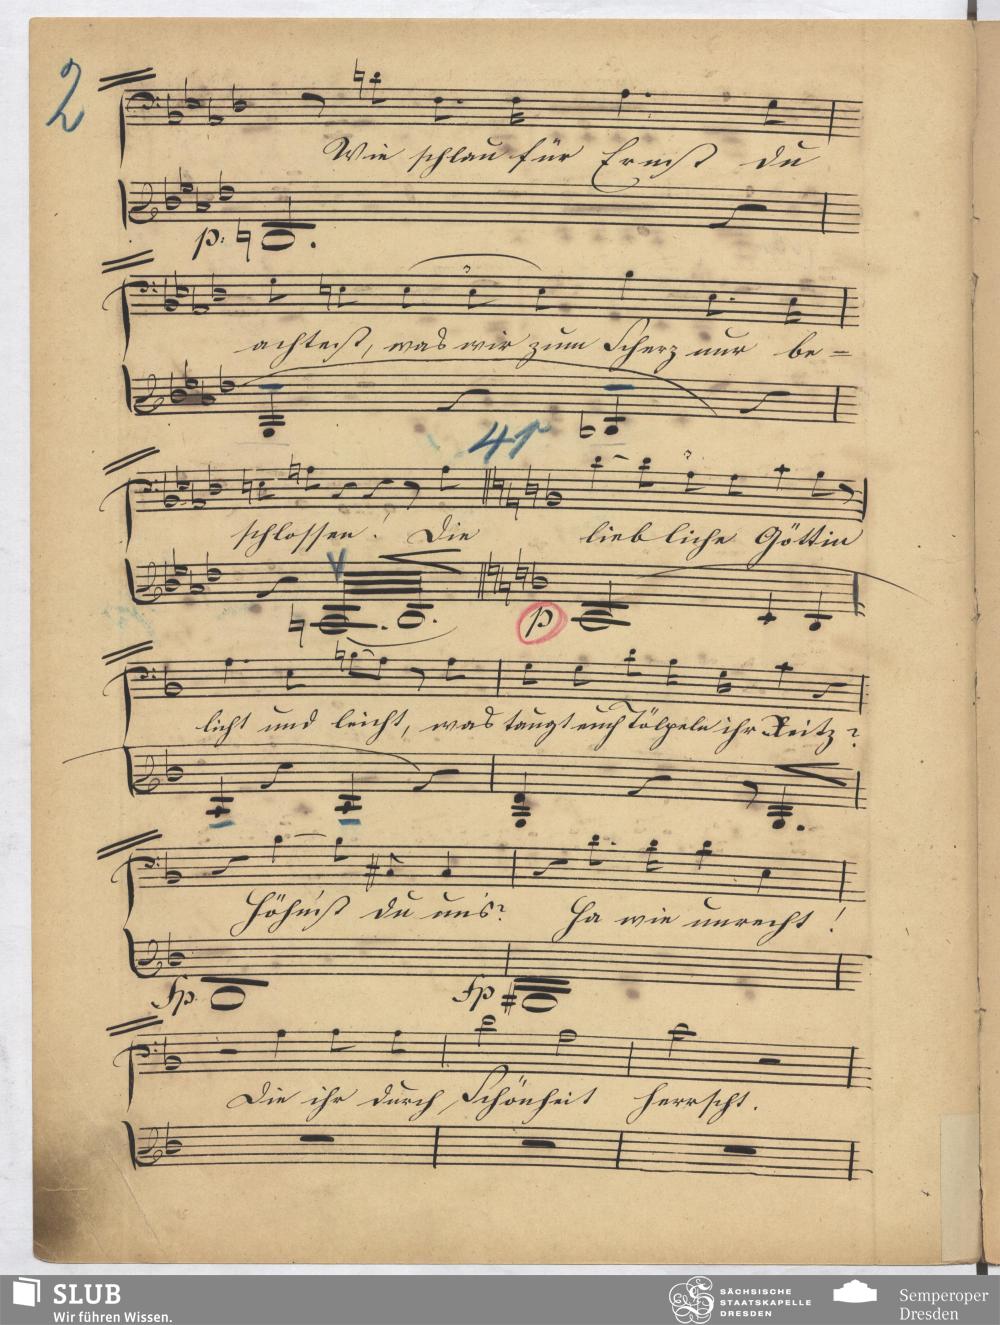 2
Wie schlau für Ernst du
p:
achtest, was wir zum Scherz nur be=
3
41
schlossen! Die liebliche Göttin
3
p
licht und leicht, was taugt euch Tölpeln ihr Reitz?
Höhn'st du uns? Ha wie unrecht!
fp fp
Die ihr durch Schönheit herrscht.
SLUB
Wir führen Wissen.
SÄCHSISCHE
STAATSKAPELLE
DRESDEN
Semperoper
Dresden